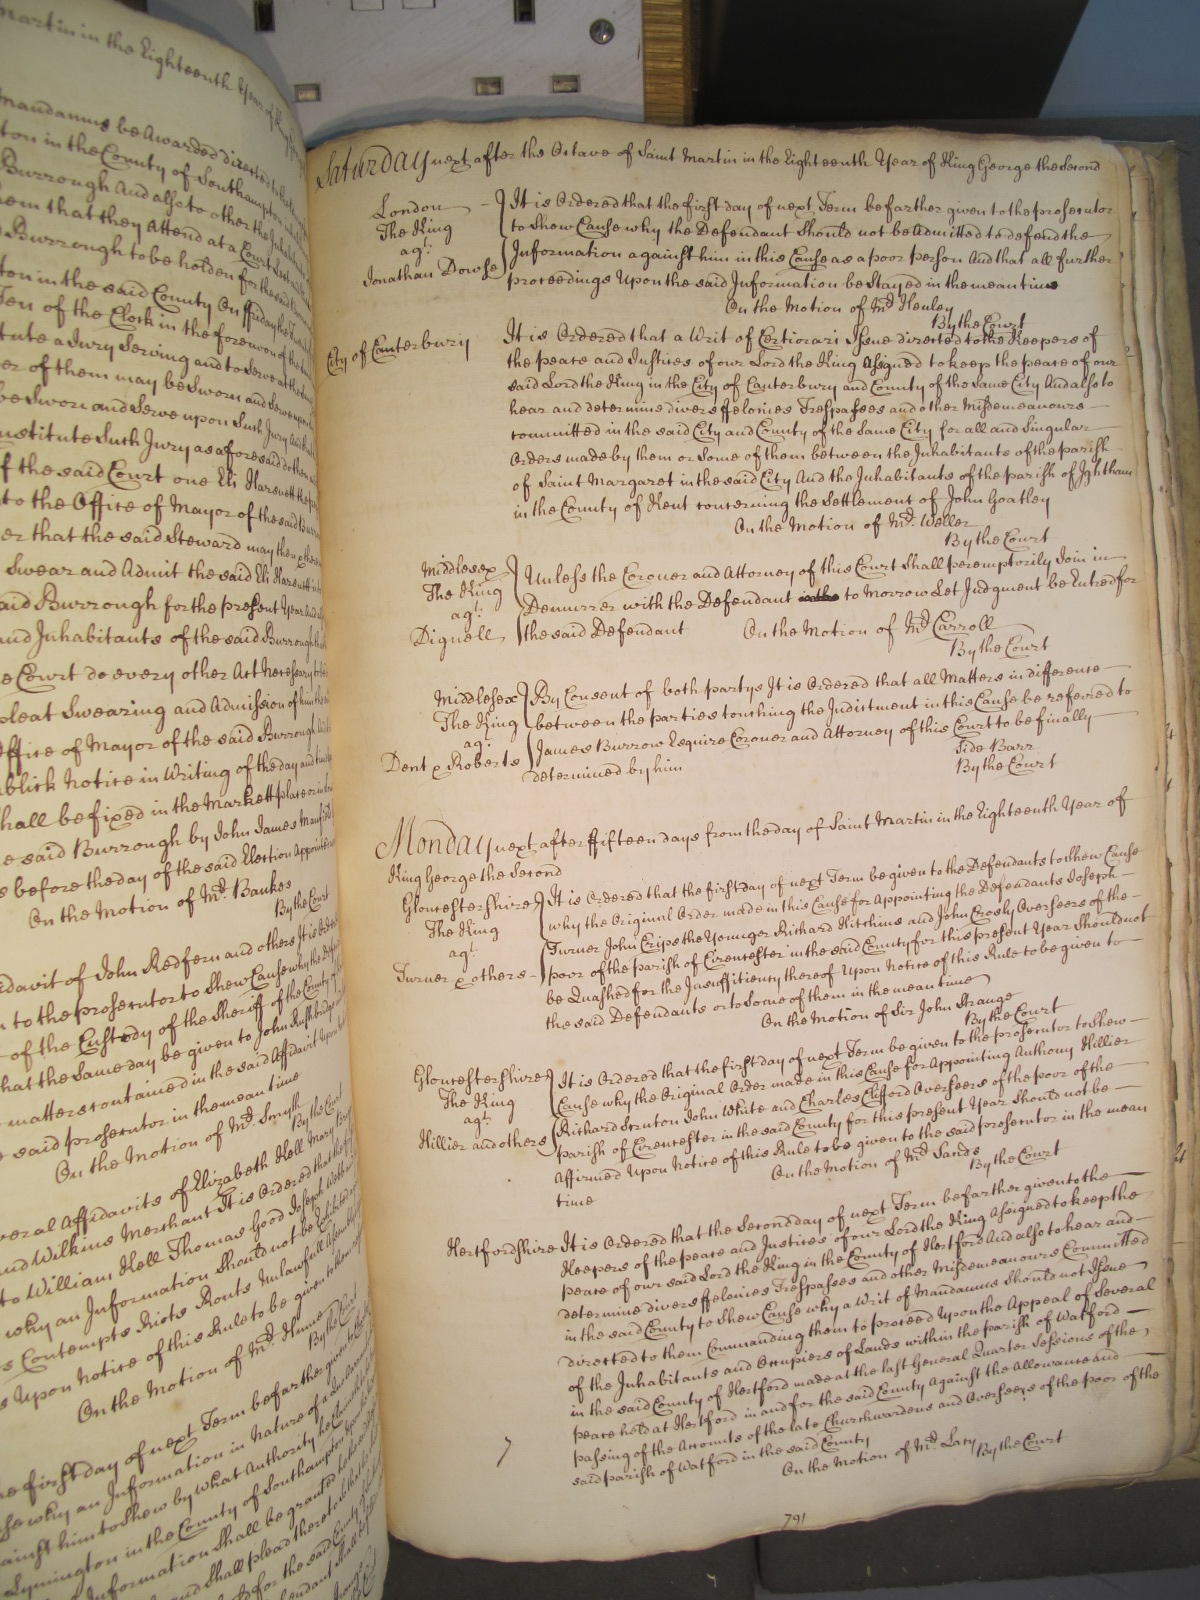 Martin in the Eighteenth Year of King
Mandamus be Awarded directed to the
ton in the County of Southampton
Burrough And also to other the Inhabitants
them that they Attend at a Court Leet
Burrough to be holden for the said
ton in the said County On ffriday the
Ten of the Clock in the forenoon of the
tute a Jury Serving and to Serve at the
er of them may be Sworn and Serve upon
be Sworn and Serve upon Such Jury And
nstitute Such Jury as aforesaid do then
f the said Court one Eli Harvett
to the Office of Mayor of the said Burrough
er that the said Steward may then
Swear and Admit the said Eli Harvett
aid Burrough for the present Year And
and Inhabitants of the said Burrough
e Court do every other Act Necessary to
pleat Swearing and Admission of him
Office of Mayor of the said Burrough
ublick Notice in Writing of the day and
hall be fixed in the Markett place or
e said Burrough by John James
s before the day of the said Election Appointed
On the Motion of Mr. Bankes
By the Court
idavit of John Redfern and others It is Ordered
n to the prosecutor to Shew Cause why the
of the Custody of the Sheriff of the County of
hat the Same day be given to John
matters contained in the said Affidavit upon
said prosecutor in the mean time
On the Motion of Mr. Smyth
By the Court
veral Affidavits of Elizabeth Kell Mary
nd Wilkins Merchant It is Ordered that the
to William Kell Thomas Good Joseph
why an Information Should not be Exhibited
s Contempts Riots Routs Unlawfull Assemblys
s Upon Notice of this Rule to be given to them
On the Motion of Mr. Hume
By the Court
he first day of next Term be farther given to the
se why an Information in Nature of a
ainst him to Shew by what Authority he
Lymington in the County of Southampton
Information Shall be granted
and Shall plead thereto
for the said County
fendant Shall
Saturday next after the Octave of Saint Martin in the Eighteenth Year of King George the Second
London
The King
agt.
Jonathan Dowse
It is Ordered that the first day of next Term be farther given to the prosecutor
to Shew Cause why the Defendant Should not be Admitted to defend the
Information against him in this Cause as a poor person And that all further
proceedings Upon the said Information be Stayed in the mean time
On the Motion of Mr. Henley
By the Court
City of Canterbury
It is Ordered that a Writ of Certiorari Issue directed to the Keepers of
the peace and Justices of our Lord the King Assigned to keep the peace of our
said Lord the King in the City of Canterbury and County of the Same City And also to
hear and determine divers ffelonies Trespasses and other Misdemeanours
committed in the said City and County of the Same City for all and Singular
Orders made by them or Some of them between the Inhabitants of the parish
of Saint Margaret in the said City And the Inhabitants of the parish of Ightham
in the County of Kent concerning the Settlement of John Goatley
On the Motion of Mr. Weller
By the Court
Middlesex
The King
agt.
Dignell
Unless the Coroner and Attorney of this Court Shall peremptorily Join in
Demurrer with the Defendant to Morrow Let Judgment be Entred for
the said Defendant
On the Motion of Mr. Carroll
By the Court
Middlesex
The King
agt.
Dent & Roberts
By Consent of both partys It is Ordered that all Matters in difference
between the parties touching the Indictment in this Cause be referred to
James Burrow Esquire Coroner and Attorney of this Court to be finally
determined by him
Side Barr
By the Court
Monday next after ffifteen days from the day of Saint Martin in the Eighteenth Year of
King George the Second
Gloucestershire
The King
agt.
Turner & others
It is Ordered that the first day of next Term be given to the Defendants to Shew Cause
why the Original Order made in this Cause for Appointing the Defendants Joseph
Turner John Crips the Younger Richard Hitchins and John Crosby Overseers of the
poor of the parish of Cirencester in the said County for this present Year Should not
be Quashed for the Insufficiency thereof Upon Notice of this Rule to be given to
the said Defendants or to Some of them in the mean time
On the Motion of Sir John Strange
By the Court
Gloucestershire
The King
agt.
Hillier and others
It is Ordered that the first day of next Term be given to the prosecutor to Shew
Cause why the Original Order made in this Cause for Appointing Anthony Hillier
Richard Scruton John White and Charles Clifford Overseers of the poor of the
parish of Cirencester in the said County for this present Year Should not be
Affirmed Upon Notice of this Rule to be given to the said prosecutor in the mean
time
On the Motion of Mr. Sands
By the Court
Hertfordshire
It is Ordered that the Second day of next Term be farther given to the
Keepers of the peace and Justices of our Lord the King Assigned to keep the
peace of our said Lord the King in the County of Hertford And also to hear and
determine divers ffelonies Trespasses and other Misdemeanours Committed
in the said County to Shew Cause why a Writ of Mandamus Should not Issue
directed to them Commanding them to proceed Upon the Appeal of Several
of the Inhabitants and Occupiers of Lands within the parish of Watford
in the said County of Hertford made at the last General Quarter Sessions of the
peace held at Hertford in and for the said County Against the Allowance and
passing of the Accounts of the late Churchwardens and Overseers of the poor of the
said parish of Watford in the said County
On the Motion of Mr. Lacy
By the Court
791